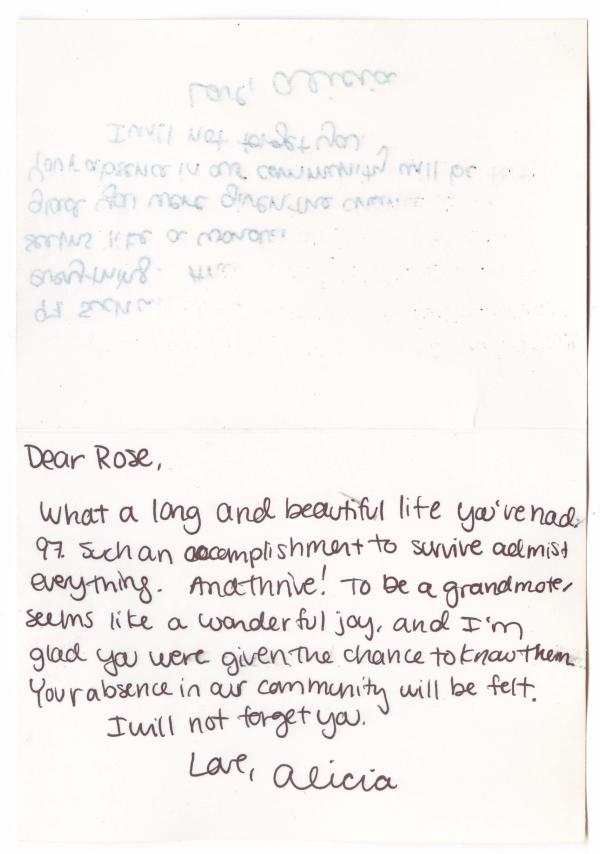 Dear Rose,
What a long and beautiful life you've had.
97. Such an accomplishment to survive admist
everything. And thrive! To be a grandmoter
seems like a wonderful joy, and I'm
glad you were given the chance to know them.
Your absence in our community will be felt.
I will not forget you.
Love, Alicia